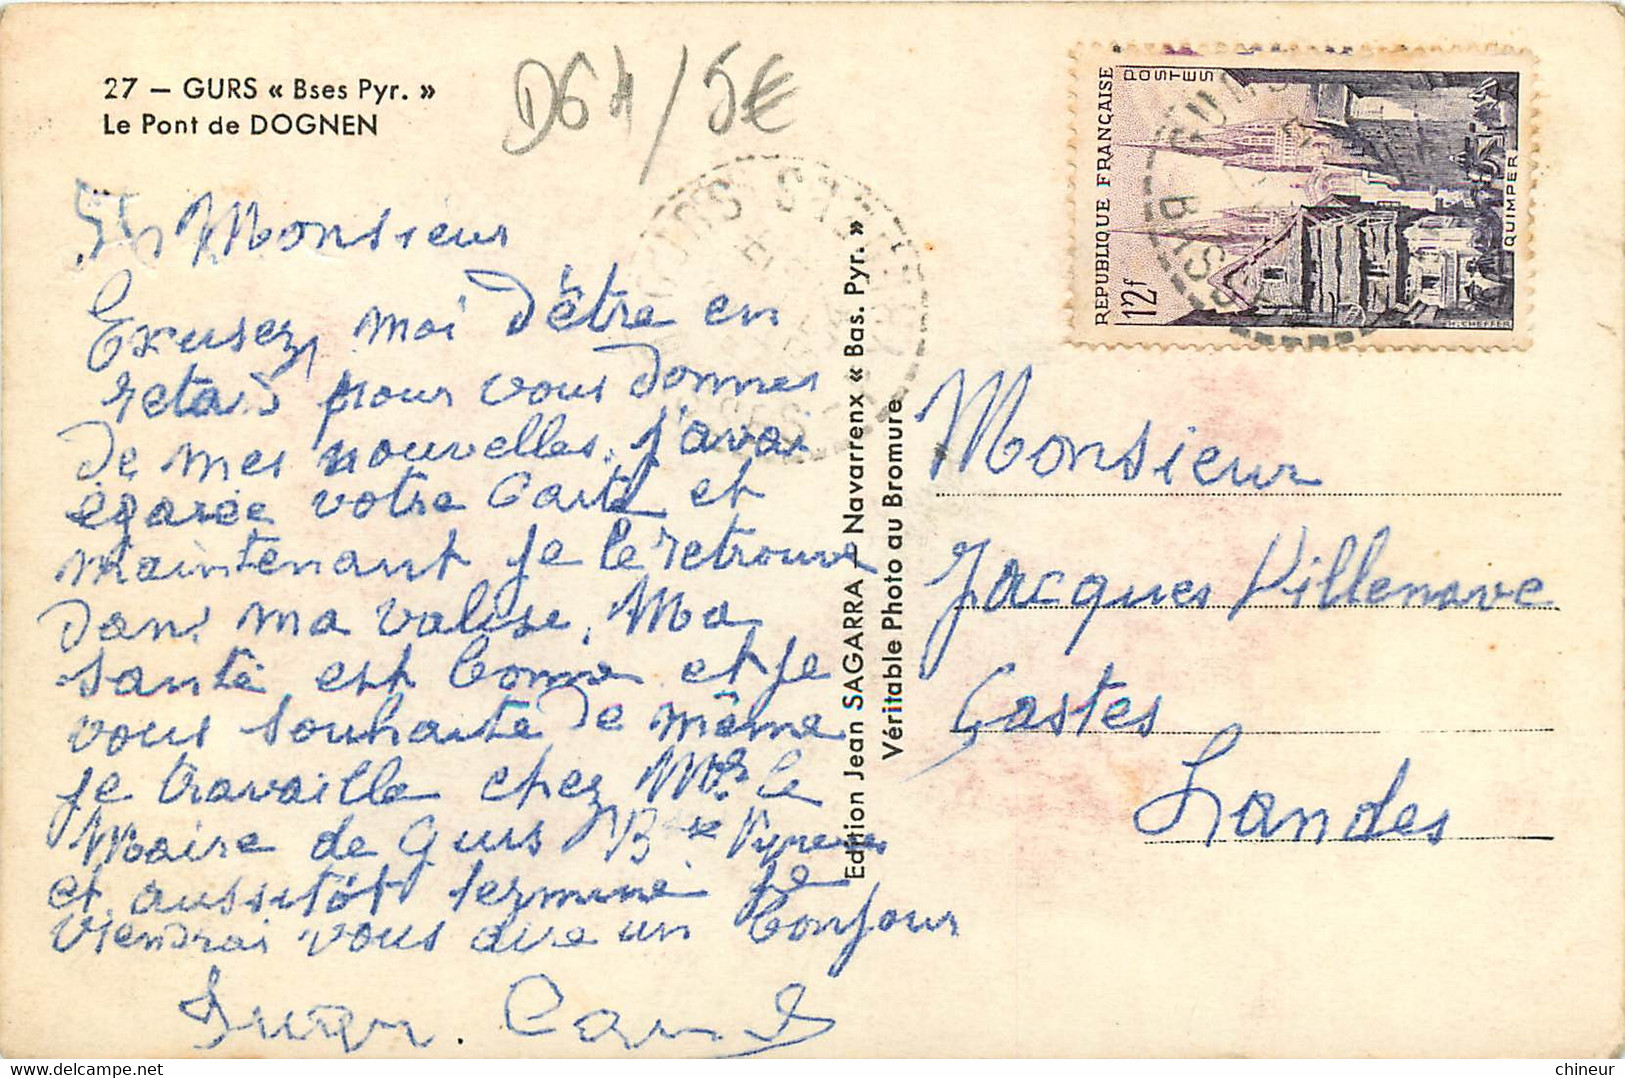 27 – GURS « Bses Pyr. »
Le Pont de DOGNEN
D64/5€
Monsieur
Exusez, moi d'être en
retard pour vous donner
de mes nouvelles, j'avai
égarée votre Carte et
maintenant je le retrouve
dans ma valise, Ma
santé est bonne et je
vous souhaite de même
je travaille chez Mr le
Maire de Gurs Bse Pyrenees
et aussitôt terminé je
viendrai vous dire un bonjour
Edition Jean SAGARRA – Navarrenx « Bas. Pyr. »
Véritable Photo au Bromure
REPUBLIQUE FRANÇAISE
POSTES
12f
QUIMPER
H. CHEFFER
GURS
Monsieur
Jacques Villenave
Gastes
Landes
chineur